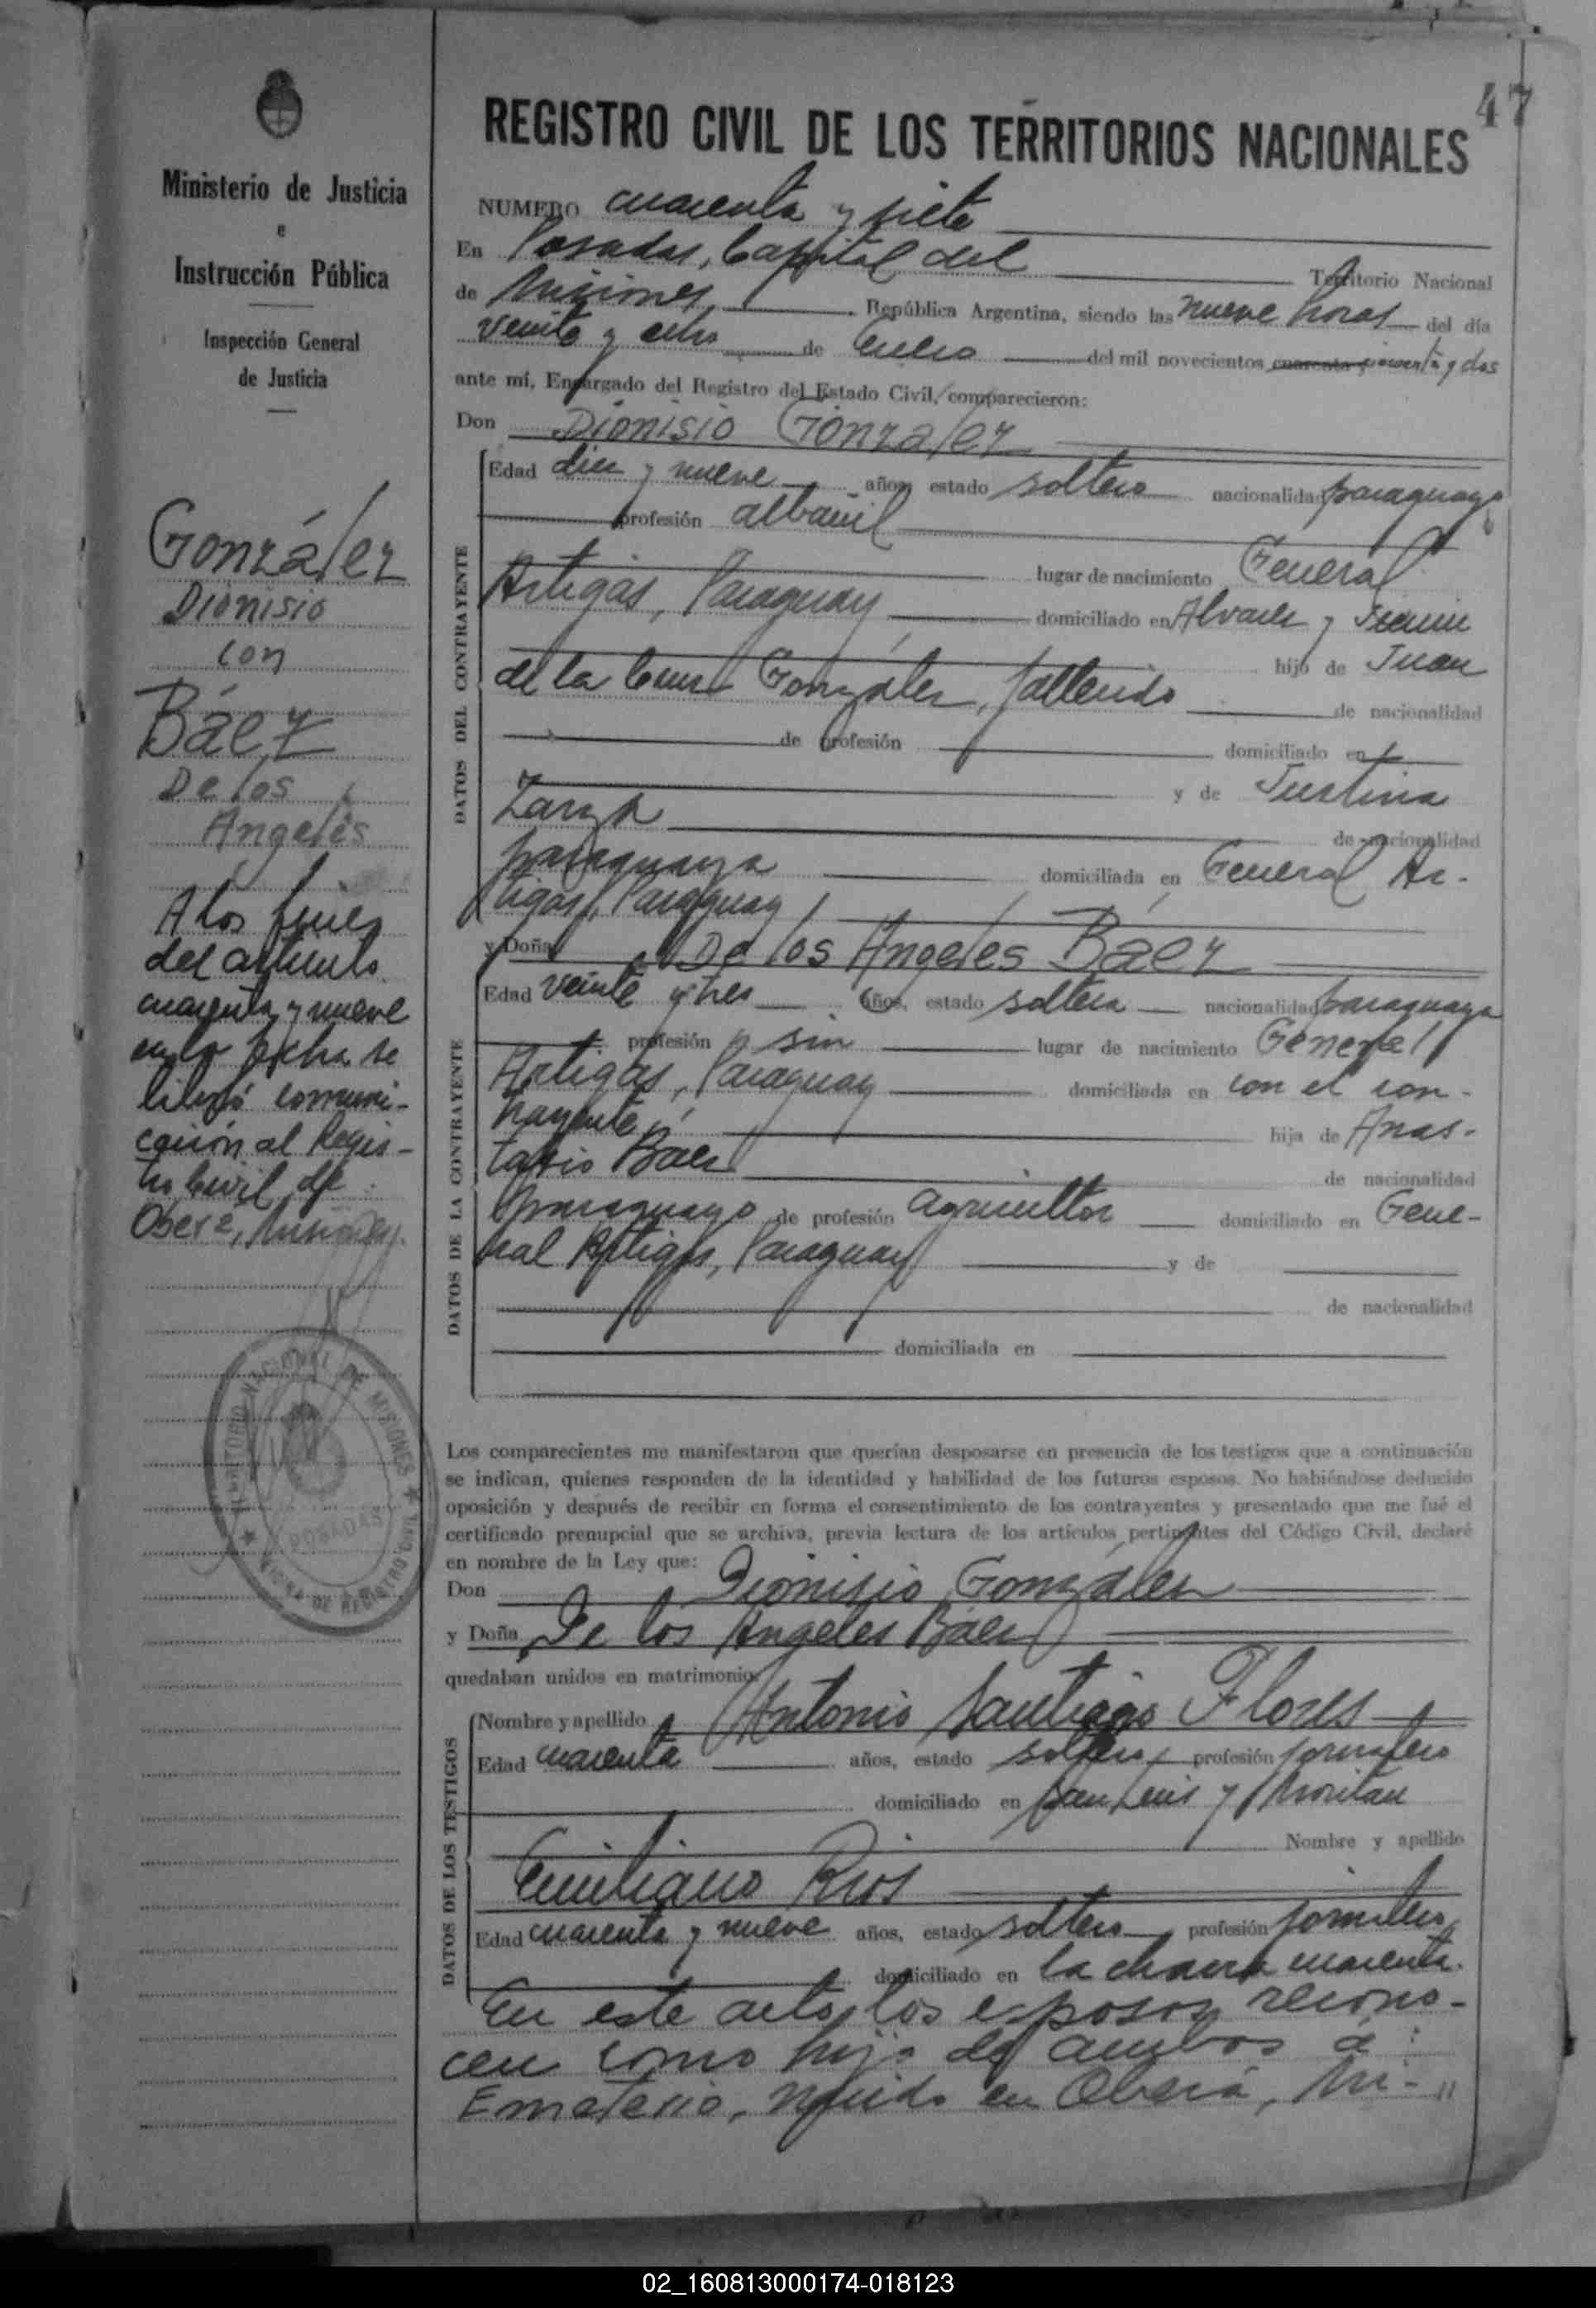 47
REGISTRO CIVIL DE LOS TERRITORIOS NACIONALES
Ministerio de Justicia
e
Instrucción Pública
Inspección General
de Justicia
González
Dionisio
con
Báez
De los
Angeles
A los fines
del artículo
cuarenta y nueve
en la fecha se
libró comuni-
cación al Regis-
tro Civil de
Oberá, Misiones.
TERRITORIO NACIONAL DE MISIONES
POSADAS
NUMERO cuarenta y siete
En Posadas, Capital del Territorio Nacional
de Misiones, República Argentina, siendo las nueve horas del día
veinte y ocho de Enero del mil novecientos cuarenta cincuenta y dos
ante mí, Encargado del Registro del Estado Civil, comparecieron:
Don Dionisio González
DATOS DEL CONTRAYENTE
Edad diez y nueve años, estado soltero nacionalidad paraguayo
profesión albañil
lugar de nacimiento General
Artigas, Paraguay domiciliado en Alvarez y
hijo de Juan
de la Cruz González, fallecido de nacionalidad
de profesión domiciliado en
y de Justina
Zarza de nacionalidad
paraguaya domiciliada en General Ar-
tigas, Paraguay
y Doña De los Angeles Báez
DATOS DE LA CONTRAYENTE
Edad veinte y tres años, estado soltera nacionalidad paraguaya
profesión sin lugar de nacimiento General
Artigas, Paraguay domiciliada en con el con-
trayente hija de Anas-
tasio Báez de nacionalidad
paraguayo de profesión agricultor domiciliado en Gene-
ral Artigas, Paraguay y de
de nacionalidad
domiciliada en
Los comparecientes me manifestaron que querían desposarse en presencia de los testigos que a continuación
se indican, quienes responden de la identidad y habilidad de los futuros esposos. No habiéndose deducido
oposición y después de recibir en forma el consentimiento de los contrayentes y presentado que me fué el
certificado prenupcial que se archiva, previa lectura de los artículos pertinentes del Código Civil, declaré
en nombre de la Ley que:
Don Dionisio González
y Doña De los Angeles Báez
quedaban unidos en matrimonio.
DATOS DE LOS TESTIGOS
Nombre y apellido Antonio Santiago Flores
Edad cuarenta años, estado soltero, profesión jornalero
domiciliado en San Luis y
Nombre y apellido
Emiliano Rios
Edad cuarenta y nueve años, estado soltero profesión jornalero
domiciliado en la chacra cuarenta.
En este acto los esposos recono-
cen como hijo de ambos a:
Emeterio, nacido en Oberá, Mi-"
02_160813000174-018123